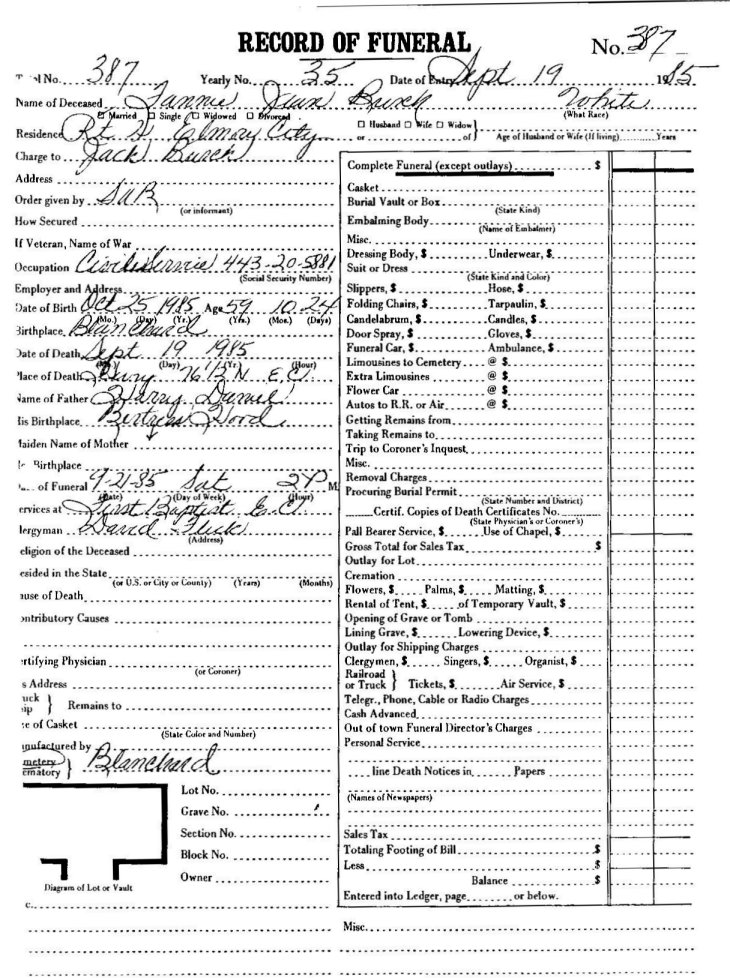 RECORD OF FUNERAL No. 387
No. 387 Yearly No. 35 Date of Entry Sept 19 1985
Name of Deceased Fannie Jean Burch White
Married Single Widowed Divorced Husband Wife Widow (What Race)
Residence Rt. City or of Age of Husband or Wife (If living) Years
Charge to Jack Burch
Address
Order given by
(or informant)
How Secured
If Veteran, Name of War
Occupation Civil Service 443-20-5881
(Social Security Number)
Employer and Address
Date of Birth Oct 25 1985 Age 59 10 24
(Mo.) (Day) (Yr.) (Yrs.) (Mos.) (Days)
Birthplace Blanchard
Date of Death Sept 19 1985
(Day) (Yr.) (Hour)
Place of Death N E.C.
Name of Father Harry Daniel
His Birthplace
Maiden Name of Mother
Birthplace
of Funeral 9-21-85 Sat 2 P M
(Date) (Day of Week) (Hour)
ervices at First Baptist E.C.
lergyman David
(Address)
eligion of the Deceased
esided in the State
(or U.S. or City or County) (Years) (Months)
use of Death
ontributory Causes
rtifying Physician
(or Coroner)
s Address
uck
ip } Remains to
e of Casket
(State Color and Number)
nufactured by
metery
ematory } Blanchard
Lot No.
Grave No.
Section No.
Block No.
Owner
Diagram of Lot or Vault
Complete Funeral (except outlays) $
Casket
Burial Vault or Box
(State Kind)
Embalming Body
(Name of Embalmer)
Misc.
Dressing Body, $ Underwear, $
Suit or Dress
(State Kind and Color)
Slippers, $ Hose, $
Folding Chairs, $ Tarpaulin, $
Candelabrum, $ Candles, $
Door Spray, $ Gloves, $
Funeral Car, $ Ambulance, $
Limousines to Cemetery @ $
Extra Limousines @ $
Flower Car @ $
Autos to R.R. or Air @ $
Getting Remains from
Taking Remains to
Trip to Coroner's Inquest
Misc.
Removal Charges
Procuring Burial Permit
(State Number and District)
Certif. Copies of Death Certificates No.
(State Physician's or Coroner's)
Pall Bearer Service, $ Use of Chapel, $
Gross Total for Sales Tax $
Outlay for Lot
Cremation
Flowers, $ Palms, $ Matting, $
Rental of Tent, $ of Temporary Vault, $
Opening of Grave or Tomb
Lining Grave, $ Lowering Device, $
Outlay for Shipping Charges
Clergymen, $ Singers, $ Organist, $
Railroad
or Truck } Tickets, $ Air Service, $
Telegr., Phone, Cable or Radio Charges
Cash Advanced
Out of town Funeral Director's Charges
Personal Service
line Death Notices in Papers
(Names of Newspapers)
Sales Tax
Totaling Footing of Bill $
Less $
Balance $
Entered into Ledger, page or below.
Misc.